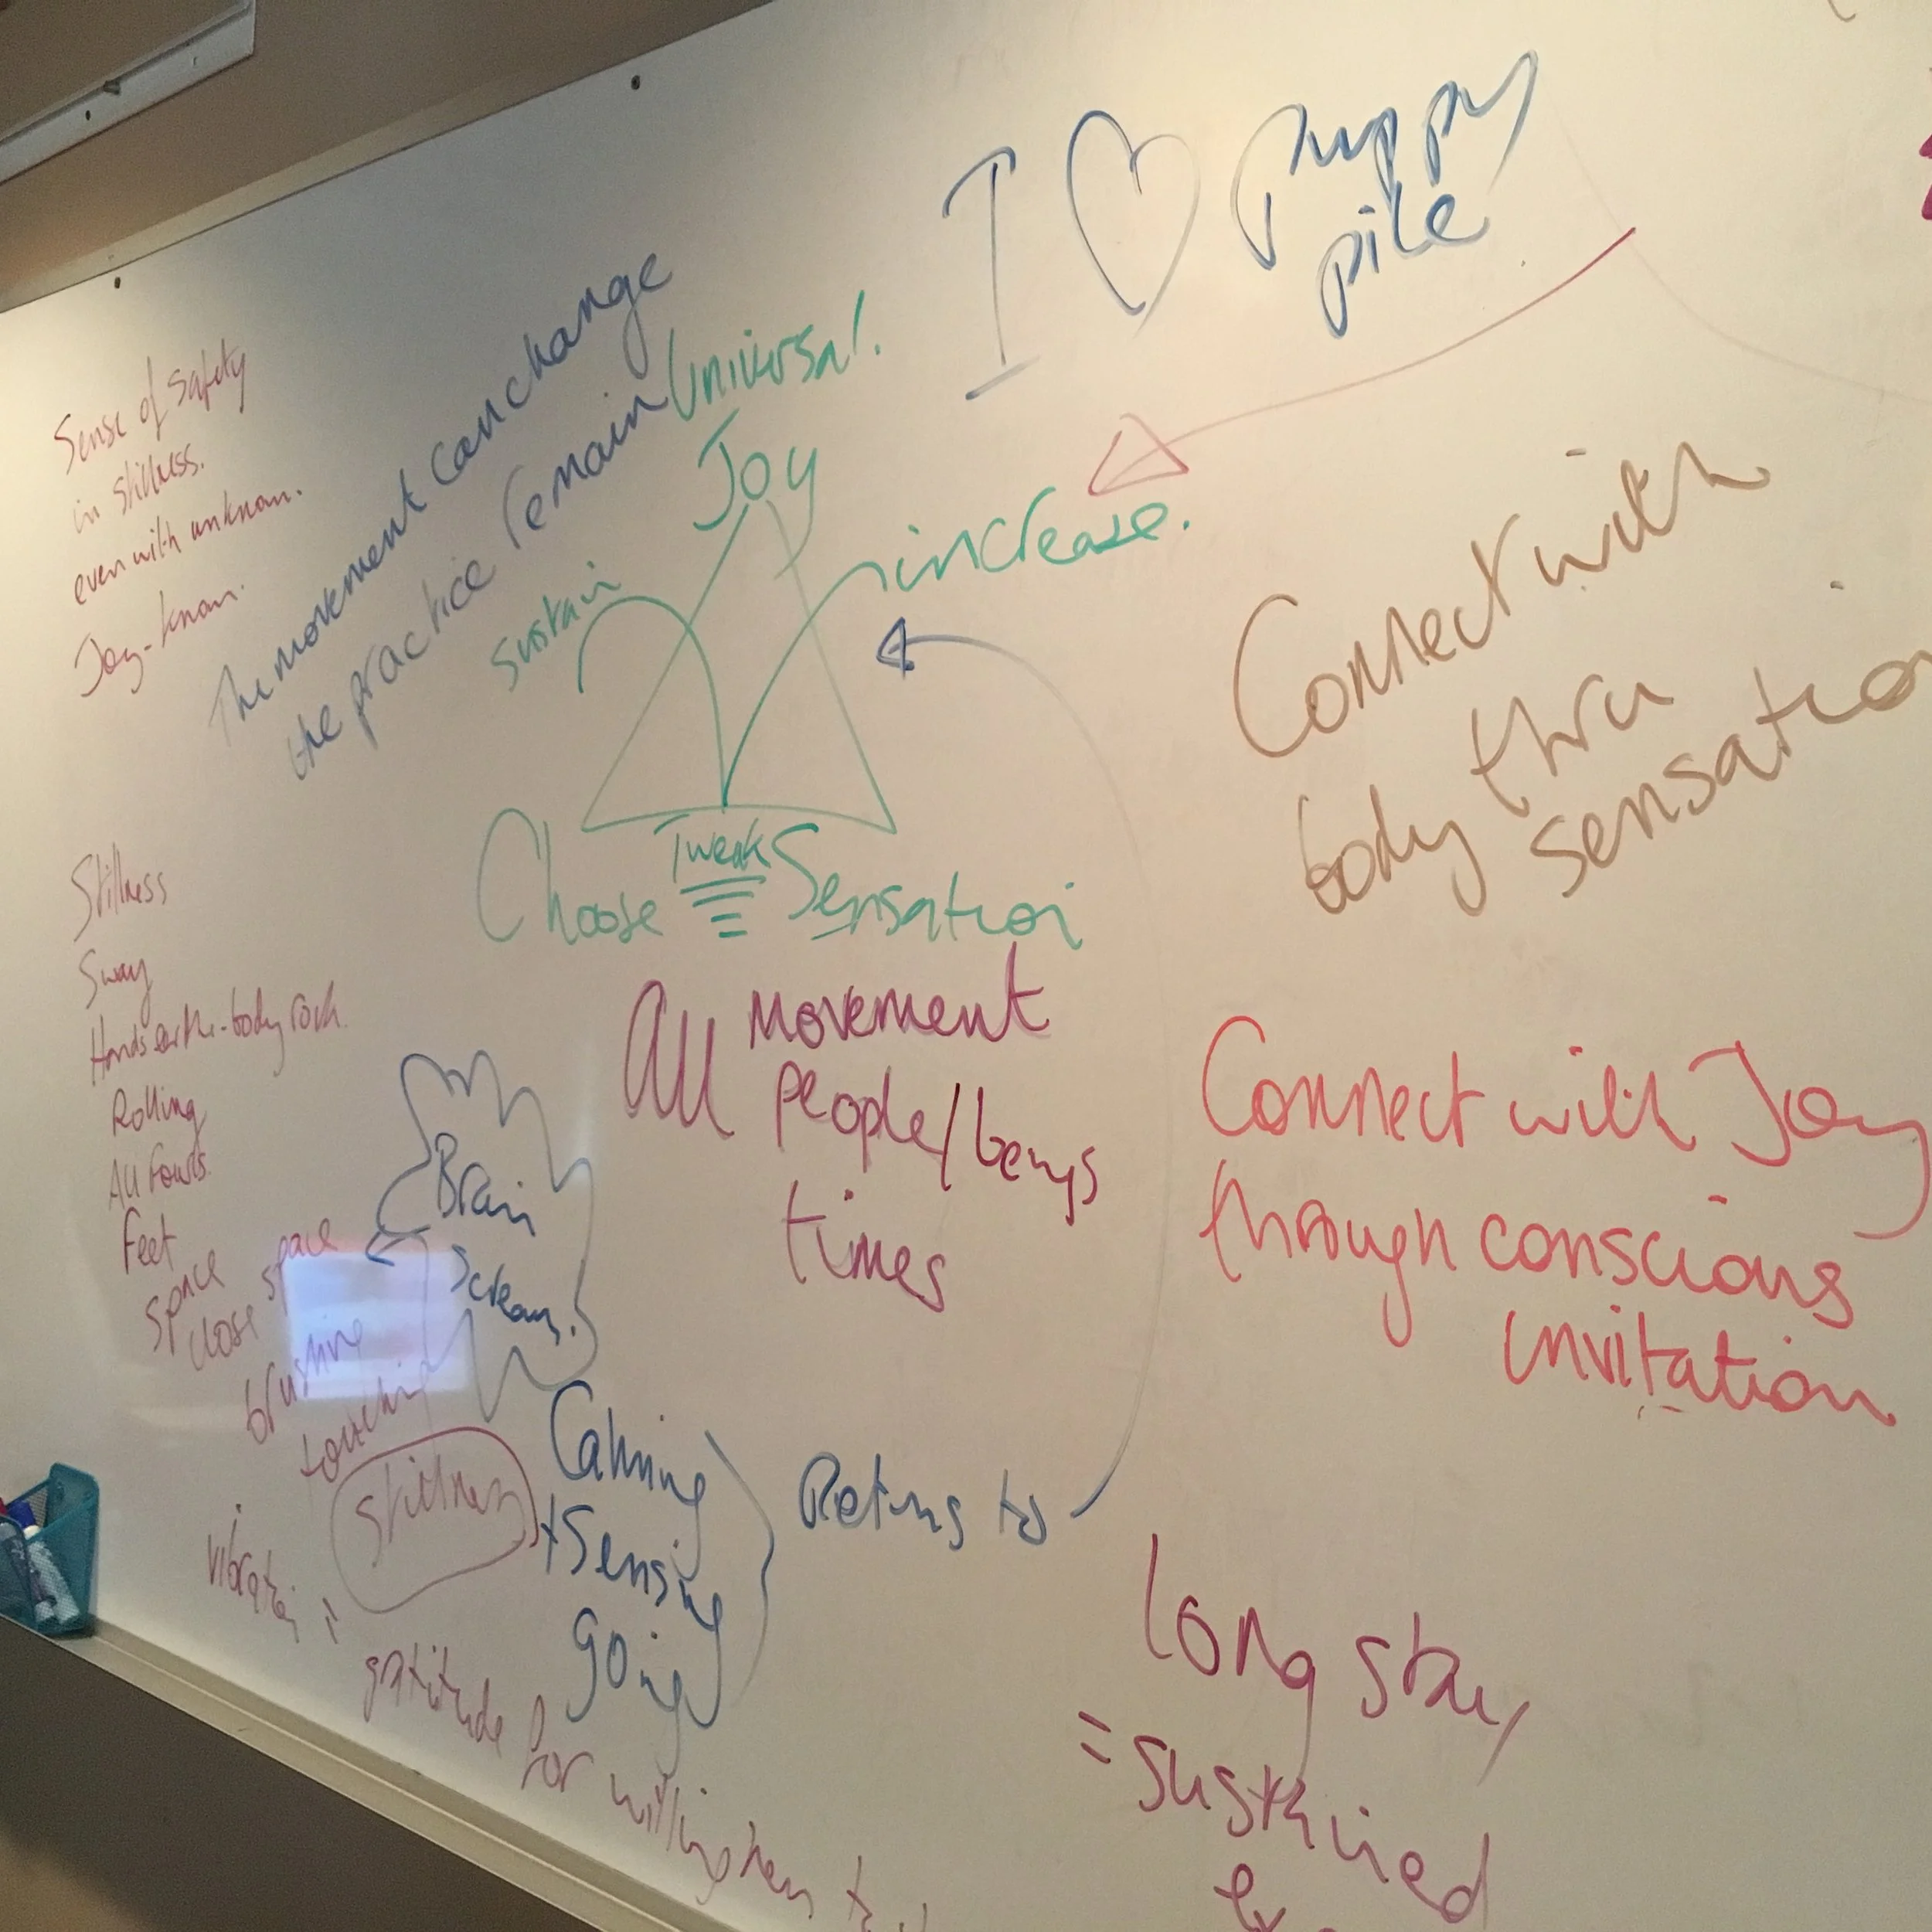 I ♡ puppy
pile
The movement can change
the practice remain Universal.
Sense of safety
in stillness.
even with unknown.
Joy - known.
Joy
sustain
increase.
Tweak
Choose Sensation
Connect with
body thru
sensation
Stillness
Sway
Rolling
All fours.
Feet
space
close space
brushing
touching
stillness
Brain
Scream.
All movement
people/beings
times
Connect with Joy
through conscious
invitation
Calming
+ Sensing
going
Returns to
gratitude for
long stay
= sustained